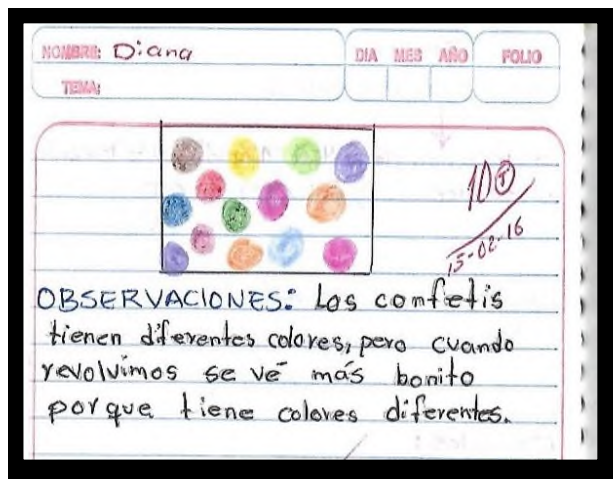 NOMBRE: Diana
DIA MES AÑO FOLIO
TEMA:
10
15-02-16
OBSERVACIONES: Los confetis
tienen diferentes colores, pero cuando
revolvimos se vé más bonito
porque tiene colores diferentes.